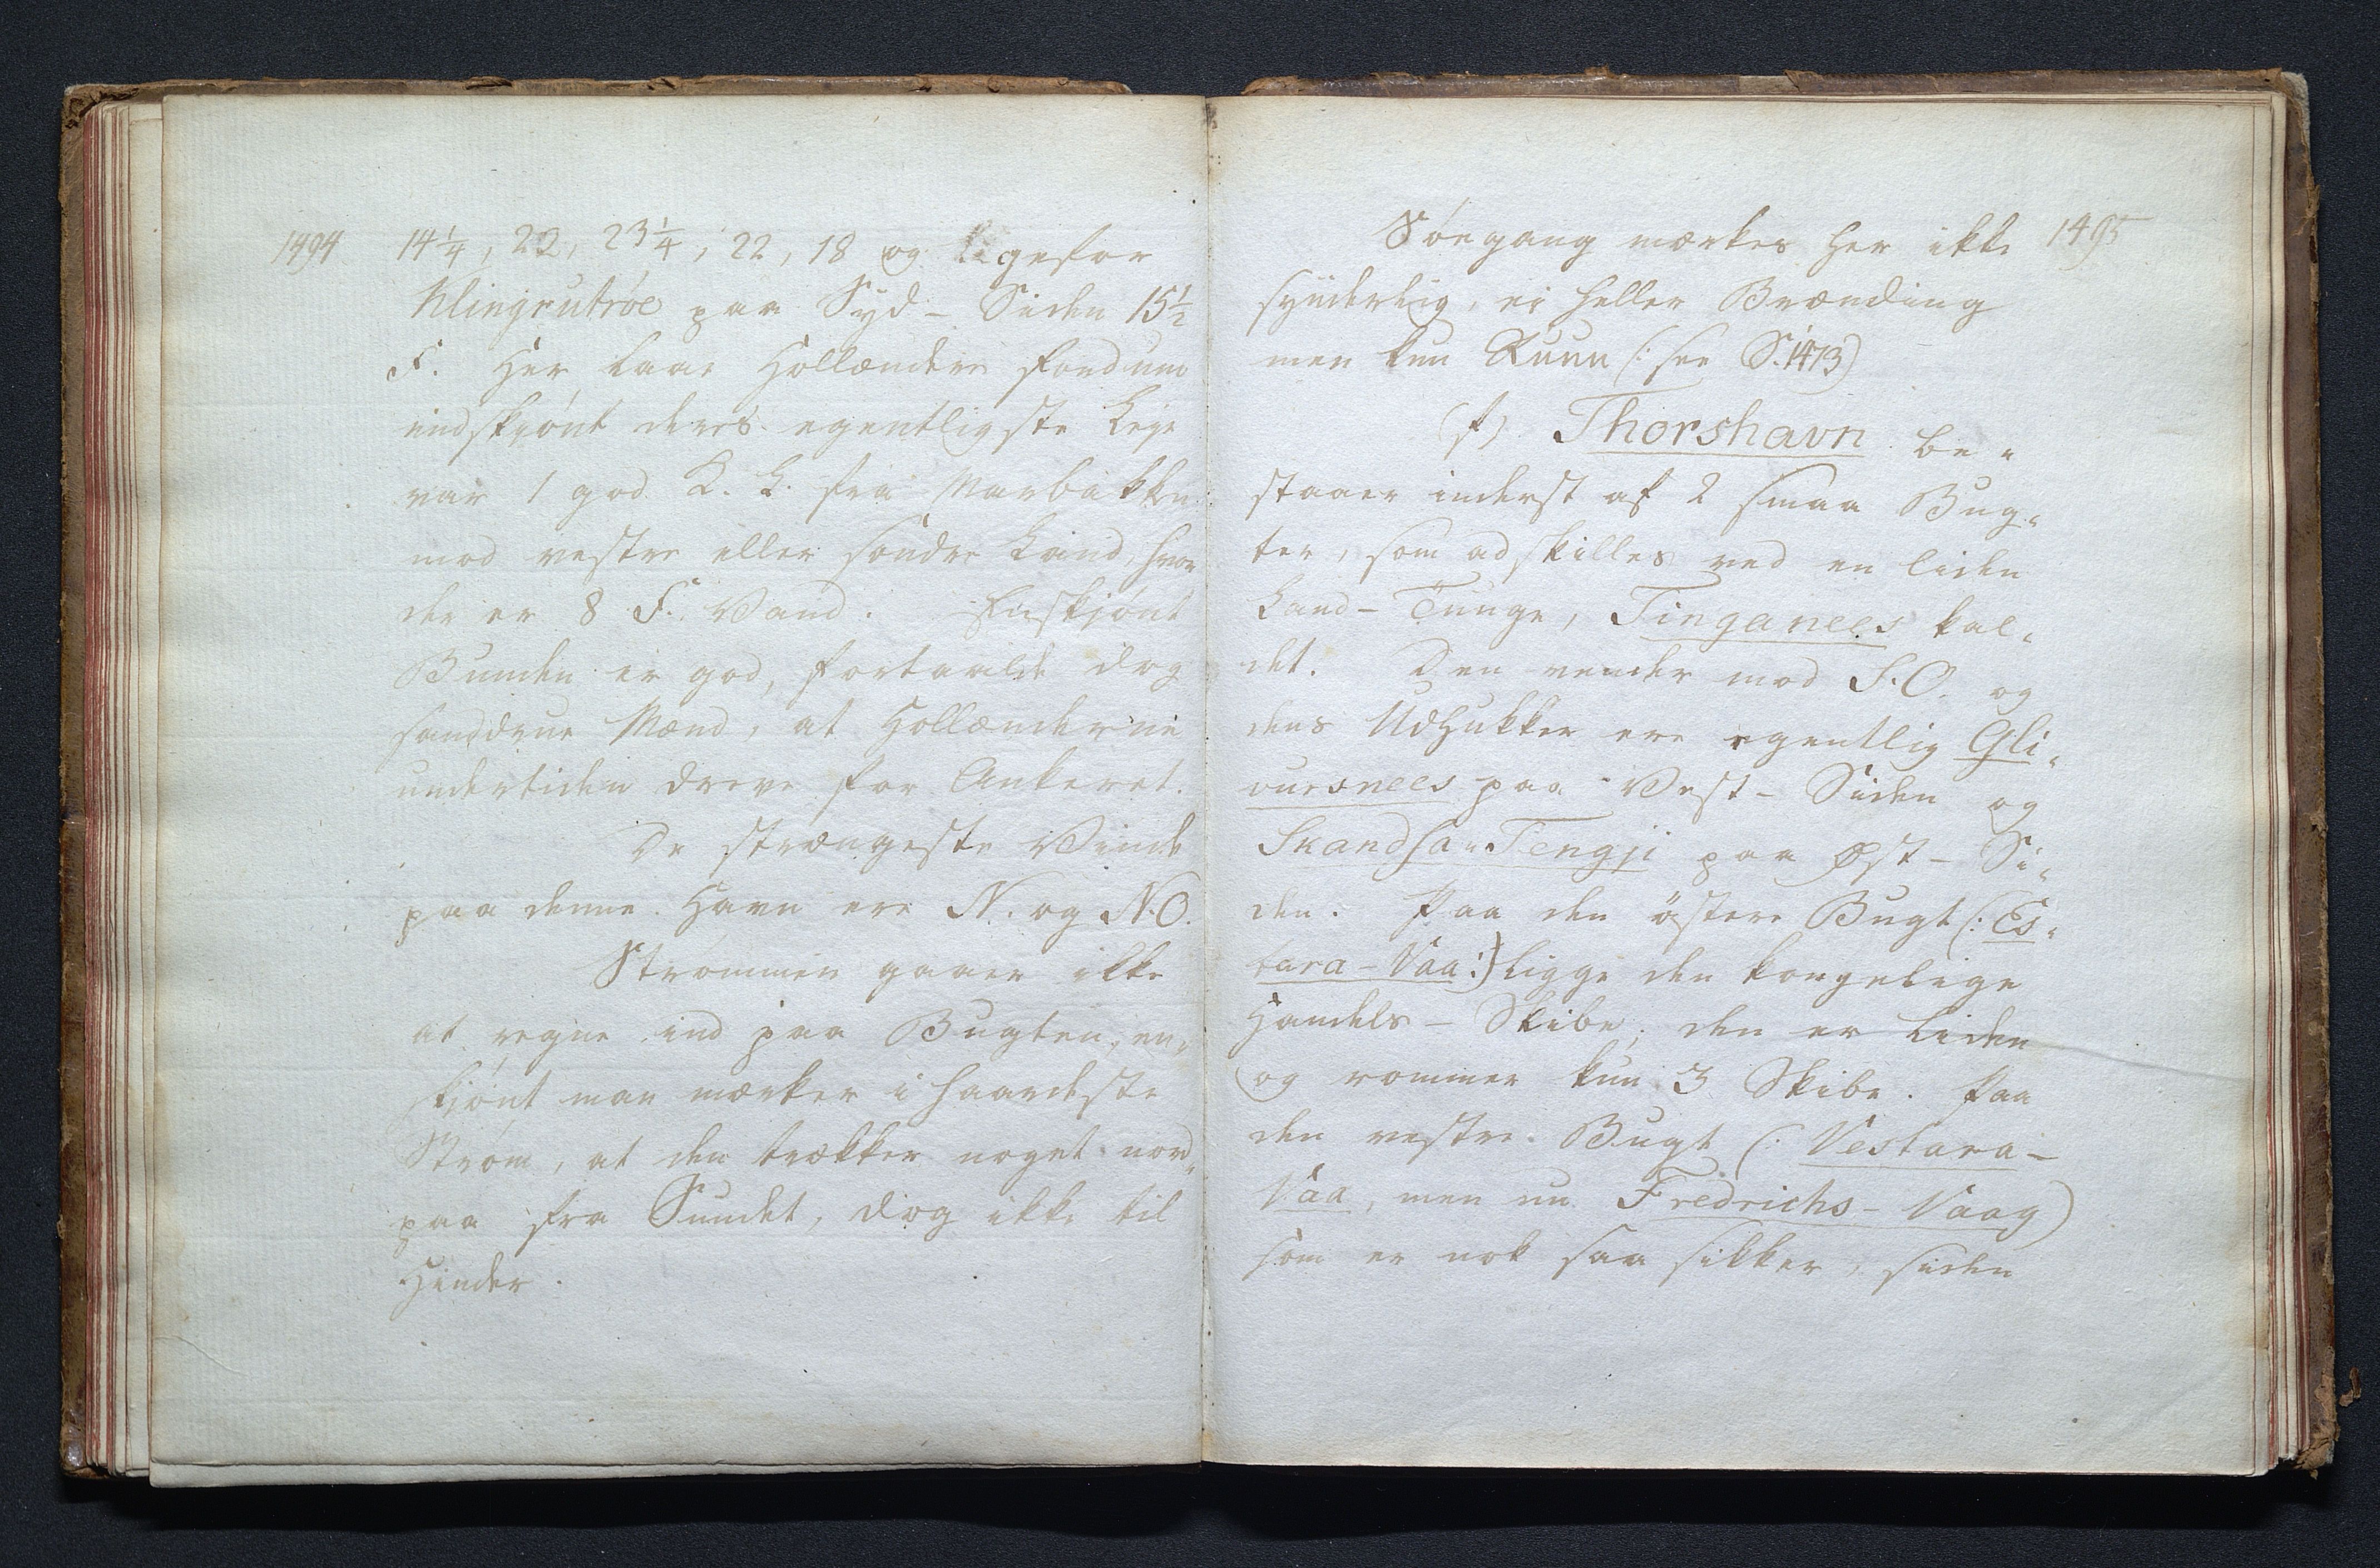 1494
14 1/4, 22, 23 1/4, 22, 18 og ligefor
Klingrutröe paa Syd - Siden 15 1/2
F. Her laae Hollændere fordum
endskjönt deres egentligste Leje
var 1 god K. L. fra Marbakken
mod vestre eller söndre Land, hvor
der er 8 F. Vand. Endskjönt
Bunden er god, fortaalte dog
sanddrue Mænd, at Hollænderne
undertiden dreve for Ankeret.
De strængeste Vinde
paa denne Havn ere N. og N.O.
Strømmen gaaer ikke
at regne ind paa Bugten, en„
skjönt man mærker i haardeste
Strøm, at den trækker noget nord„
paa fra Sundet, dog ikke til
Hinder.
1495
Söegang mærkes her ikke
synderlig, ei heller Brænding
men kun (: see S. 1473)
f) Thorshavn be„
staaer inderst af 2 smaa Bug„
ter, som adskilles ved en liden
Land - Tunge, Tinganees kal„
det. Den vender mod S.O. og
dens Udhukker ere egentlig Gli„
vursnees paa Vest - Siden og
Skandsa„Tengji paa Øst - Si„
den. Paa den östere Bugt (: Es„
tara - Vaa:) ligge den kongelige
Handels - Skibe, den er liden
og rommer kun 3 Skibe. Paa
den vestre Bugt (: Vestara -
Vaa, men nu Fredrichs - Vaag)
som er nok saa sikker, siden